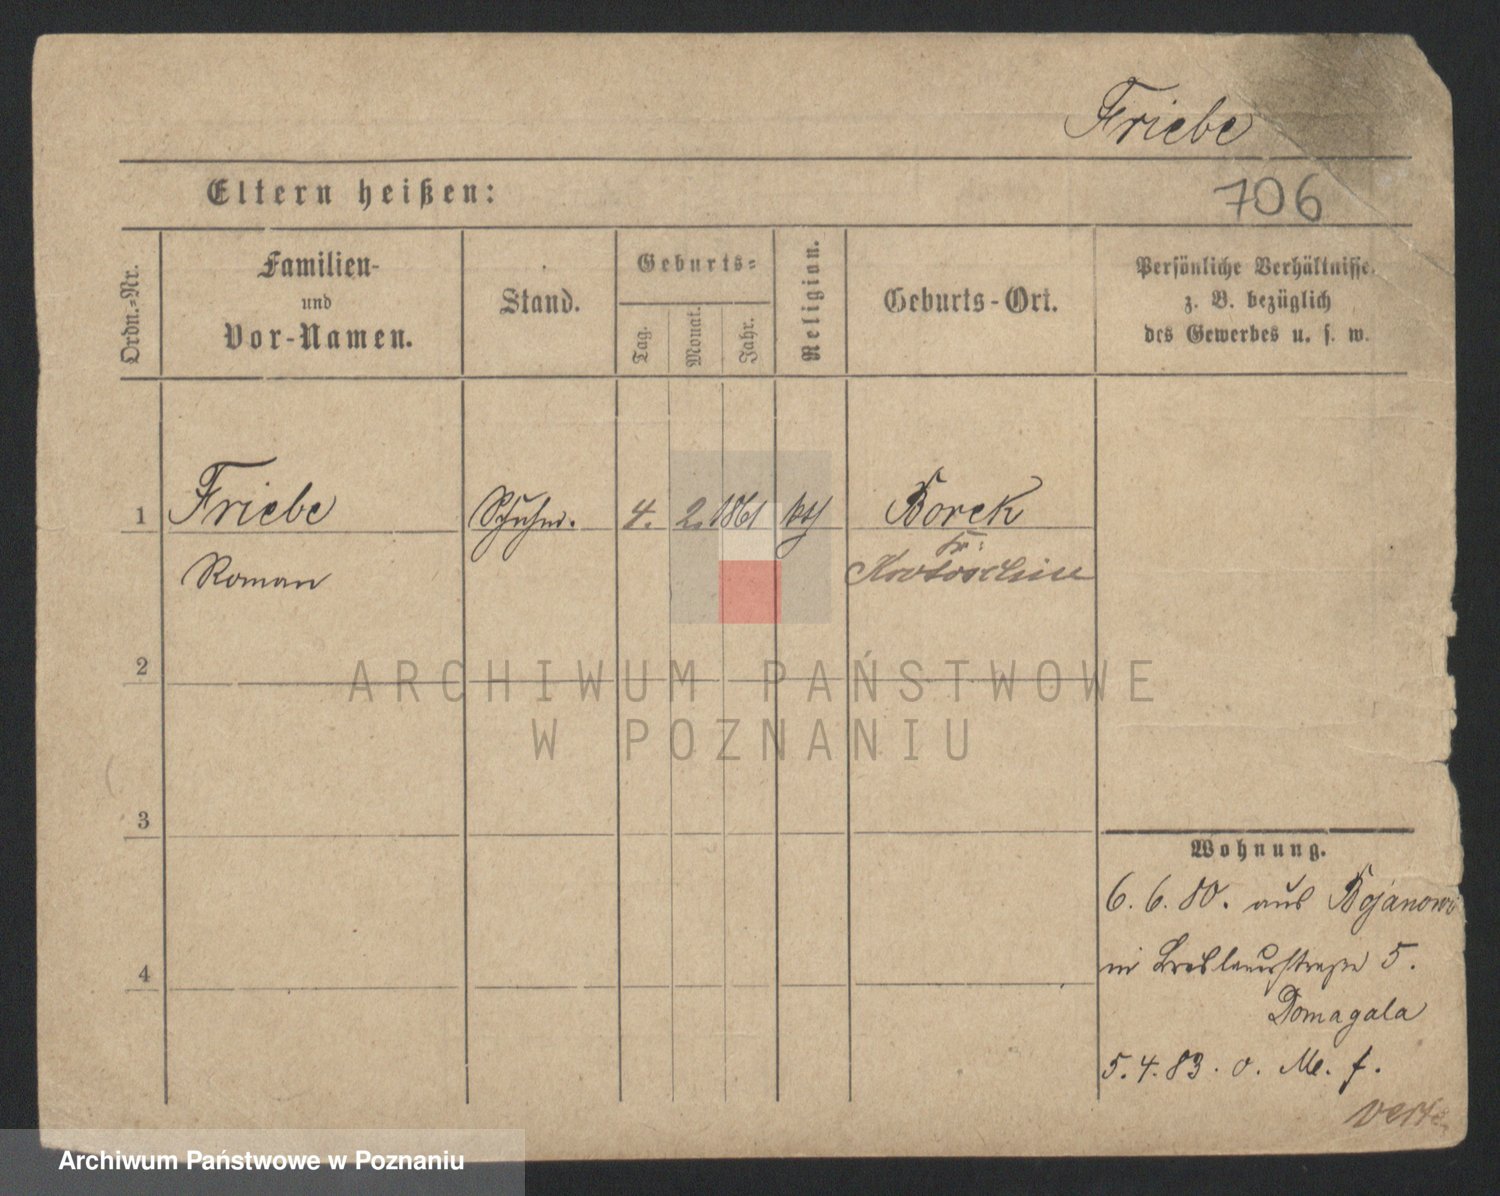 Friebe
Eltern heißen:
706
Ordn.-Nr.
Familien-
und
Vor-Namen.
Stand.
Geburts-
Tag.
Monat.
Jahr.
Religion.
Geburts-Ort.
Persönliche Verhältnisse
z. B. bezüglich
des Gewerbes u. s. w.
1
Friebe
Schuhm.
4.
2.
1861
kth
Borek
Kr:
Roman
Krotoschin
2
ARCHIWUM PAŃSTWOWE
W POZNANIU
3
Wohnung.
6. 6. 80. aus Bojanowo
in Breslauerstraße 5.
4
Domagala
5. 4. 83. o. M. f.
verte
Archiwum Państwowe w Poznaniu